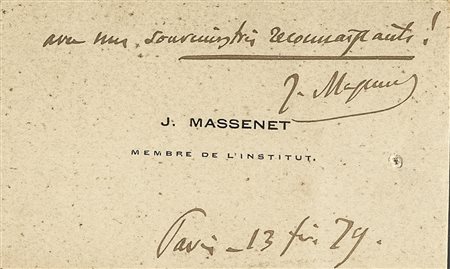 avec mes souvenirs très reconnaissants !
J. Massenet
J. MASSENET
MEMBRE DE L'INSTITUT.
Paris _ 13 fév 79.